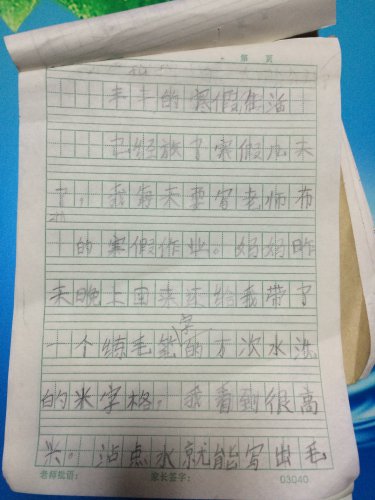 第 页
丰丰的寒假生活
已经放了寒假几天
了,我每天要写老师布
置的寒假作业。妈妈昨
天晚上回来还给我带了
一个练毛笔字的万次水洗
的米字格。我看到很高
兴。沾点水就能写出毛
老师批语: 家长签字: 03040